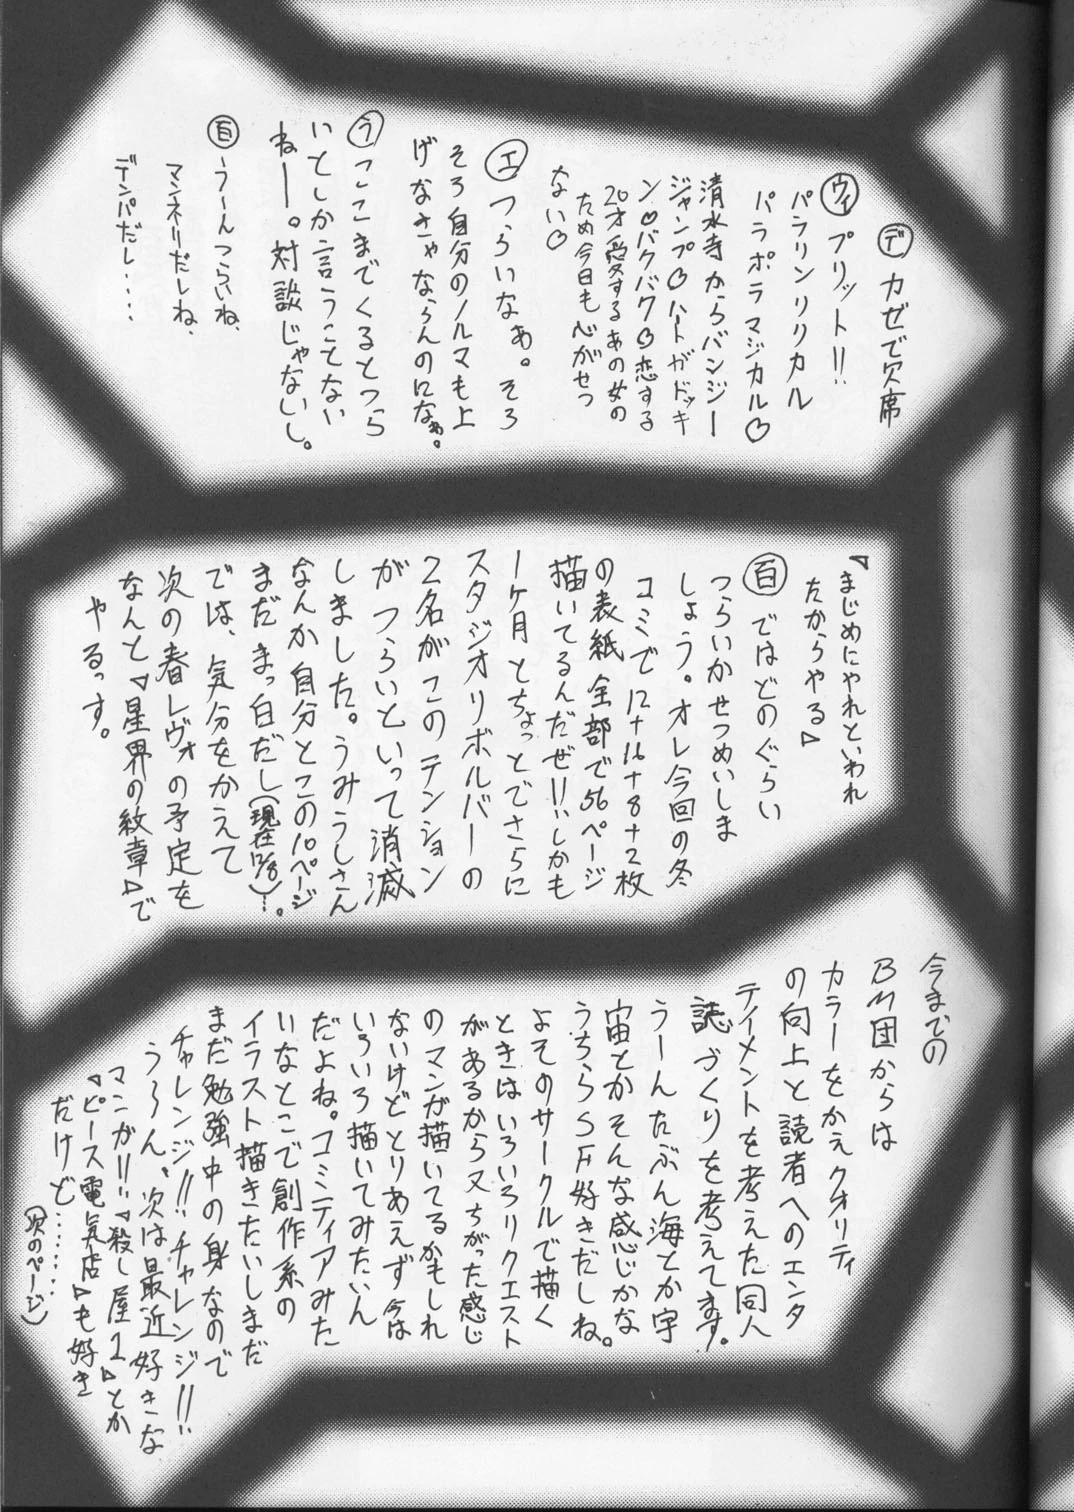 デ カゼで欠席
ウィ プリット!!
パラリンリリカル
パラポラマジカル♡
清水寺からバンジー
ジャンプ♡ハートがドッキ
ン♡バクバク♡恋する
20才愛するあの女の
ため今日も心がせつ
ない♡
エ つらいなぁ。そろ
そろ自分のノルマも上
げなきゃならんのになぁ。
う ここまでくるとつら
いとしか言うことない
ねー。対談じゃないし。
百 う〜んつらいね、
マンネリだしね、
デンパだし‥‥
「まじめにやれといわれ
たからやる」
百 ではどのぐらい
つらいかせつめいしま
しょう。オレ今回の冬
コミで12+16+8+2枚
の表紙全部で56ページ
描いてるんだぜ!!しかも
1ヶ月とちょっとでさらに
スタジオリボルバーの
2名がこのテンション
がつらいといって消滅
しました。うみうしさん
なんか自分とこの10ページ
まだまっ白だし(現在12/8)…。
では、気分をかえて
次の春レヴォの予定を
なんと「星界の紋章」で
やるっす。
今までの
BM団からは
カラーをかえクオリティ
の向上と読者へのエンタ
ティメントを考えた同人
誌づくりを考えてます。
うーんたぶん海とか宇
宙とかそんな感じかな。
うちらSF好きだしね。
よそのサークルで描く
ときはいろいろリクエスト
があるから又ちがった感じ
のマンガ描いてるかもしれ
ないけどとりあえず今は
いろいろ描いてみたいん
だよね。コミティアみた
いなとこで創作系の
イラスト描きたいしまだ
まだ勉強中の身なので
チャレンジ!!チャレンジ!!
う〜ん、次は最近好きな
マンガ!!「殺し屋1」とか
「ピース電気店」も好き
だけど‥‥‥‥
(次のページ)